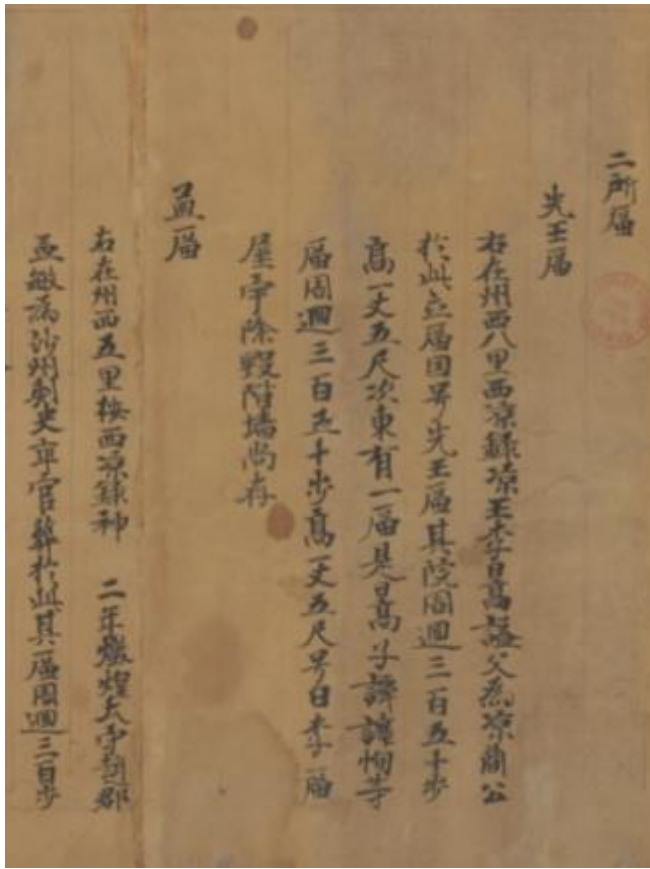 二所庿
先王庿
右在州西八里西凉錄凉王李暠謚父為凉簡公
於此立庿因号先王庿其院周迴三百五十步
髙一丈五尺次東有一庿是暠子譚讓恂等
庿周迴三百五十步髙一丈五尺号曰李庿
屋宇除毀階墻尚存
孟庿
右在州西五里按西凉錄神 二年燉煌太守趙郡
孟敏為沙州刺史卒官葬於此其庿周迴三百步